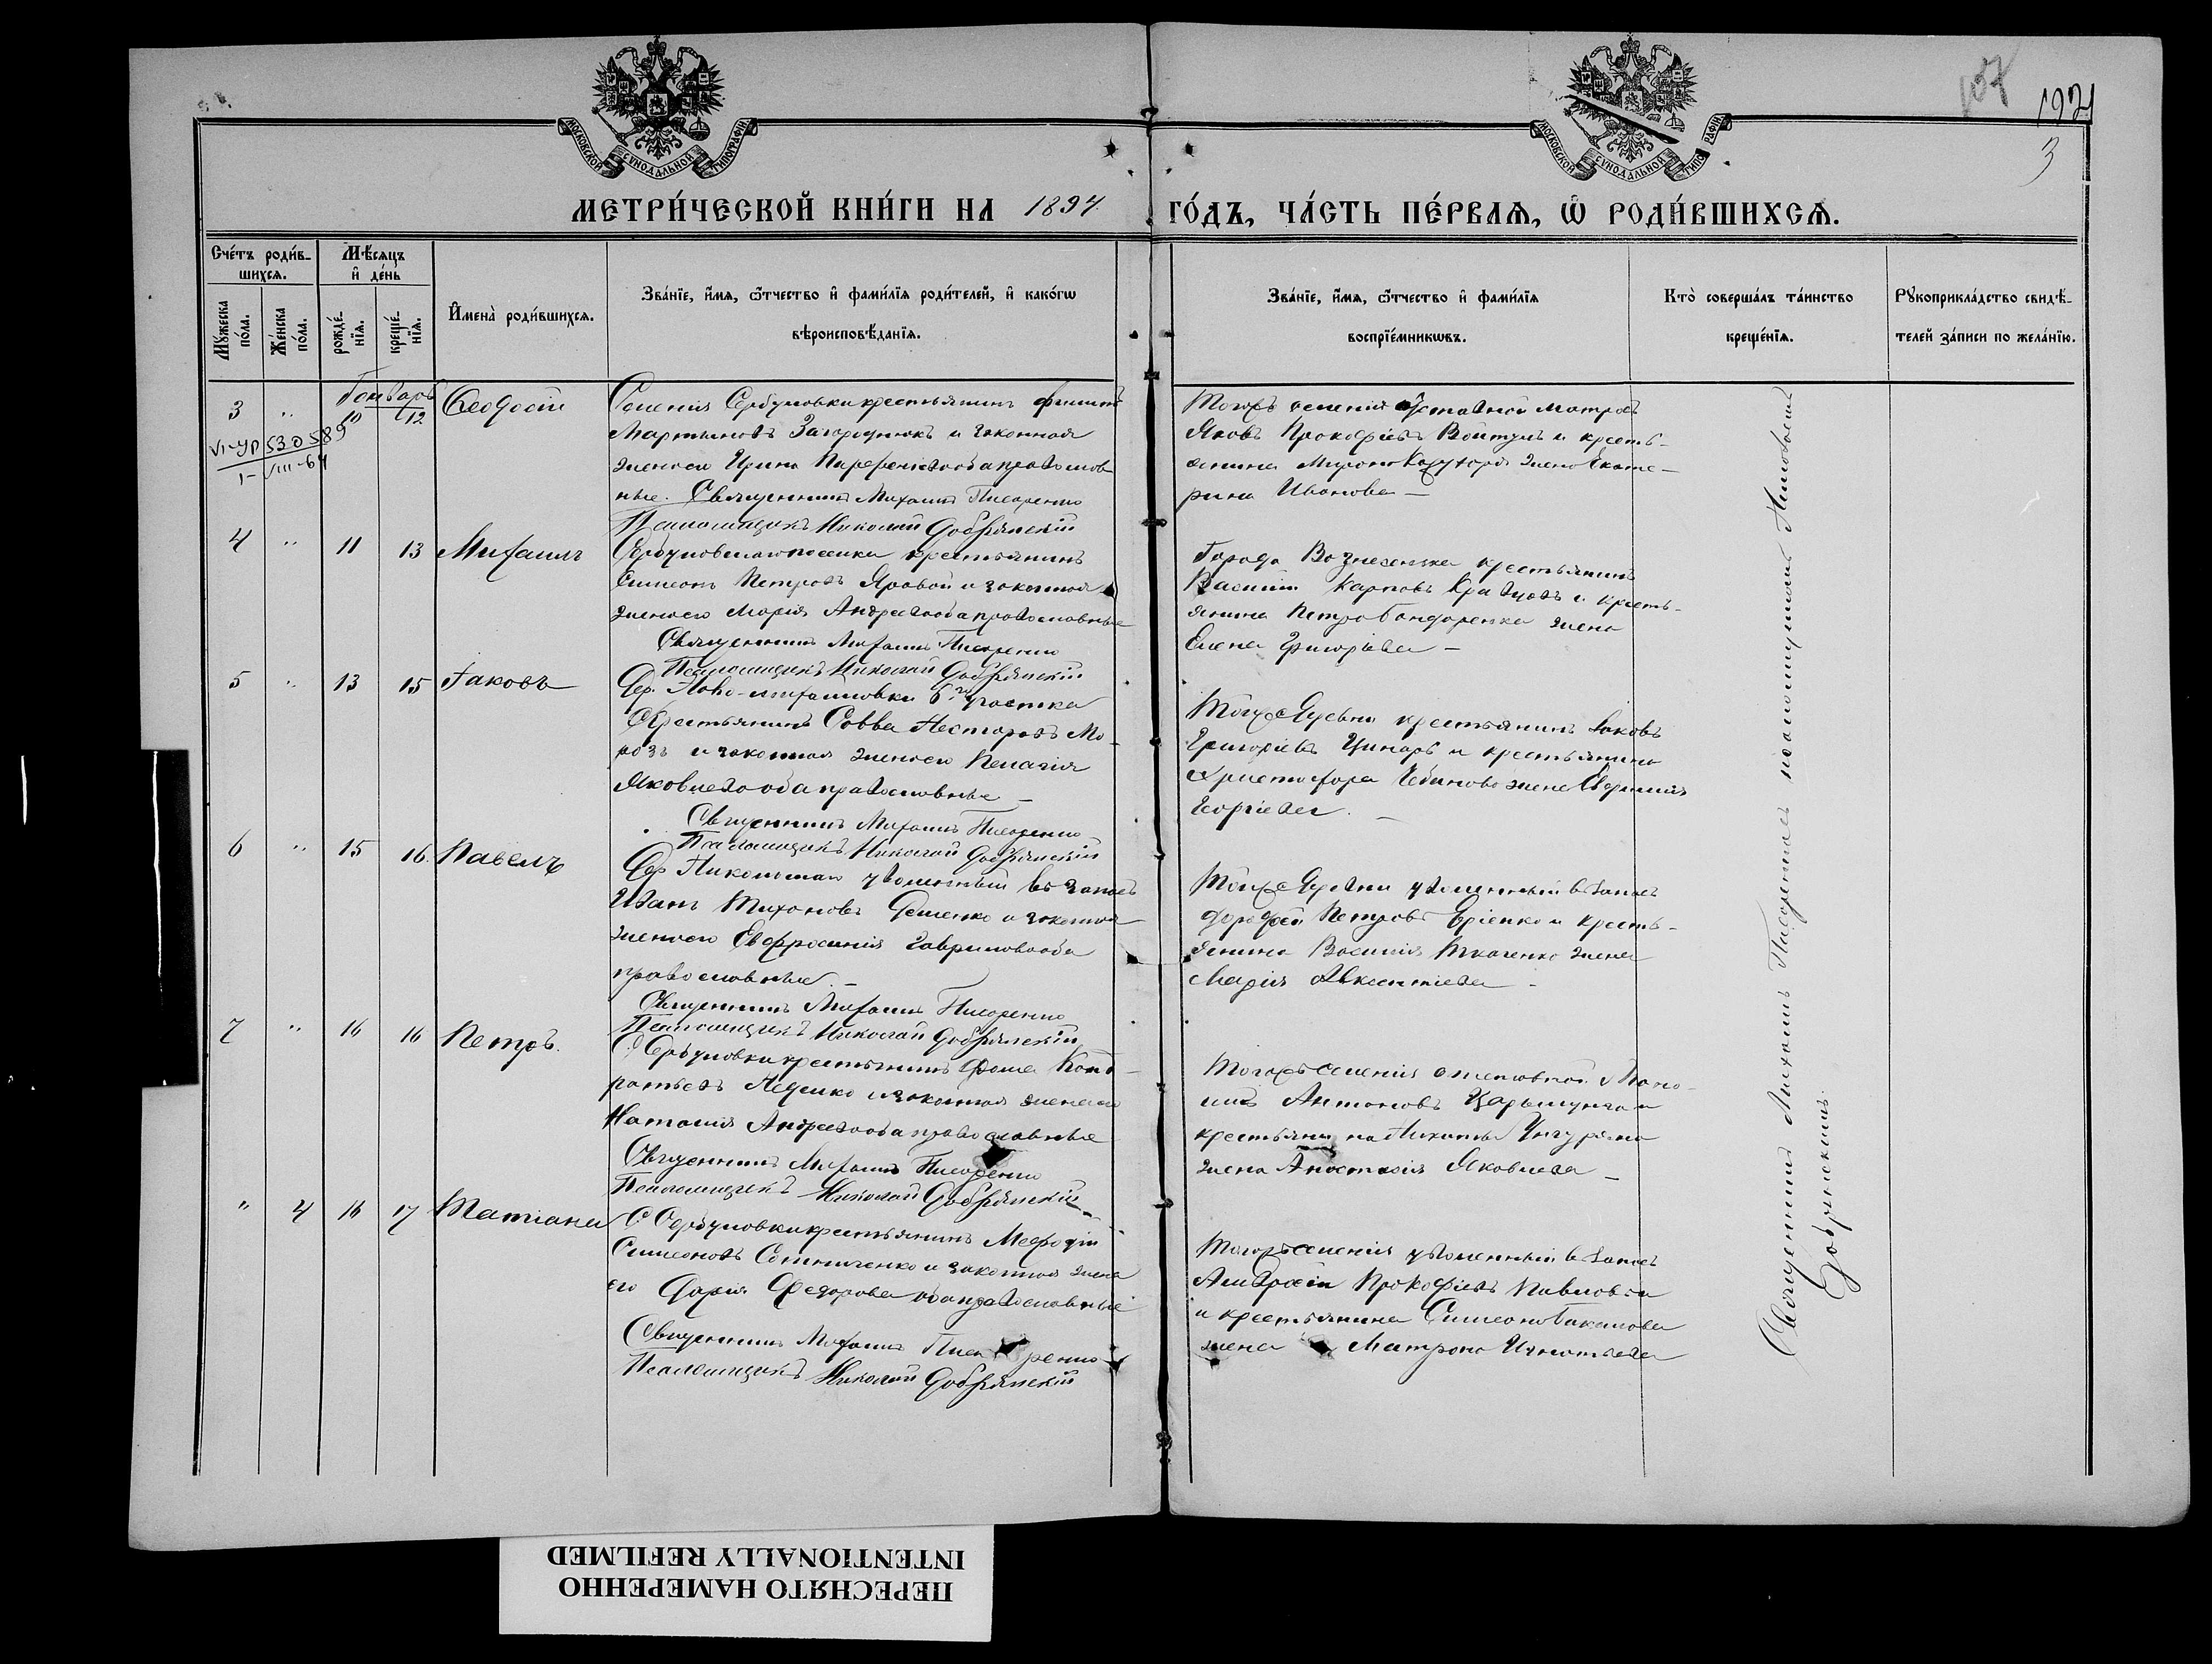 МОСКОВСКОЙ СУНОДАЛЬНОЙ ТИПОГРАФІИ
МОСКОВСКОЙ СУНОДАЛЬНОЙ ТИПОГРАФІИ
107
192
3
МЕТРИ́ЧЕСКОЙ КНИ́ГИ НА 1894 ГО́ДЪ, ЧА́СТЬ ПЕ́РВАЯ, Ѡ РОДИ́ВШИХСЯ.
Сче́тъ роди́в-
шихся.
Мѣ́сяцъ
и҆ де́нь
Мꙋ́жеска
по́ла.
Же́нска
по́ла.
рожде́-
нїя.
креще́-
нїя.
И҆мена̀ роди́вшихся.
Зва́нїе, и҆́мя, ѻ҆́тчество и҆ фами́лїя роди́телей, и҆ како́гѡ
вѣроисповѣ́данїя.
Зва́нїе, и҆́мя, ѻ҆́тчество и҆ фами́лїя
воспрїе́мникѡвъ.
Кто̀ соверша́лъ та́инство
креще́нїя.
Рꙋкоприкла́дство свидѣ́-
телей за́писи по жела́нїю.
Январь
3 " 10 12 Ѳеодосій
VI-УР 530589
1-VIII-64
Селенія Сербуловки крестьянинъ Филипъ
Мартыновъ Загороднюкъ и законная
жена его Ирина Парфеніева оба православ-
ные. Священникъ Михаилъ Писаренко
Псаломщикъ Николай Добрянскій
Тогожъ селенія отставной матросъ
Яковъ Прокофіевъ Войтулъ и кресть-
янина Мирона жена Екате-
рина Иванова —
4 " 11 13 Михаилъ
Сербуловскаго поселка крестьянинъ
Симеонъ Петровъ Яровой и законная
жена его Марія Андреева оба православные
Священникъ Михаилъ Писаренко
Псаломщикъ Николай Добрянскій
Города Вознесенска крестьянинъ
Василій Карповъ Кравцовъ и кресть-
янина Петра Бондаренка жена
Елена Григорьева —
5 " 13 15 Іаковъ
Дер. Ново-михайловки 6го участка
Крестьянинъ Савва Несторовъ Мо-
розъ и законная жена его Пелагія
Яковлева оба православные —
Священникъ Михаилъ Писаренко
Псаломщикъ Николай Добрянскій
Тойже Деревни крестьянинъ Іаковъ
Григоріевъ Цинарь и крестьянина
Христофора жена Евфимія
Георгіева. —
6 " 15 16. Павелъ
Дер. Никольской уволенный въ запасъ
Иванъ Тихоновъ Доленко и законная
жена его Евфросинія Гаврилова оба
православные. —
Священникъ Михаилъ Писаренко
Псаломщикъ Николай Добрянскій
Тойже Деревни уволенный въ запасъ
Дорофей Петровъ и кресть-
янина Василія Ткаченко жена
Марія Авксентіева —
7 " 16 16 Петръ.
С. Сербуловки крестьянинъ Фома Конд-
ратьевъ Лещенко и законная жена его
Наталія Андреева оба православные
Священникъ Михаилъ Писаренко
Псаломщикъ Николай Добрянскій
Тогожъ селенія
Антоновъ и
крестьянина Никиты Унгуряна
жена Анастасія Яковлева —
" 4 16 17 Татіана
С. Сербуловки крестьянинъ Меѳодій
Симеоновъ Сотниченко и законная жена
его Дарія Федорова оба православные
Священникъ Михаилъ Писаренко
Псаломщикъ Николай Добрянскій
Тогожъ селенія уволенный въ запасъ
Амвросій Прокофіевъ
и крестьянина Симеона Бакалова
жена Матрона Игнатьева
Священникъ Михаилъ Писаренко съ псаломщикомъ Николаемъ
Добрянскимъ.
ПЕРЕСНЯТО НАМЕРЕННО
INTENTIONALLY REFILMED